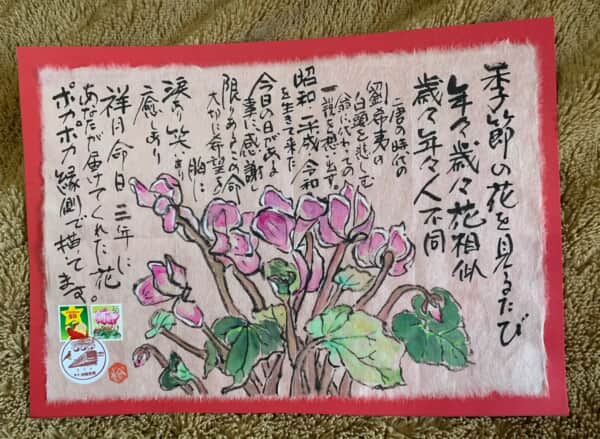 季節の花を見るたび
年々歳々花相似
歳々年々人不同
唐の時代の
劉希夷の
白頭を悲しむ
翁に代わっての
一説を想い出す。
昭和 平成 令和
を生きて来た
今日の日がある
事に感謝し
限りあるこの命
大切に希望を
胸に
涙あり笑あり
癒しあり
祥月命日 三年に
あなたが届けてくれた花
ポカポカ縁側で描てます。
50